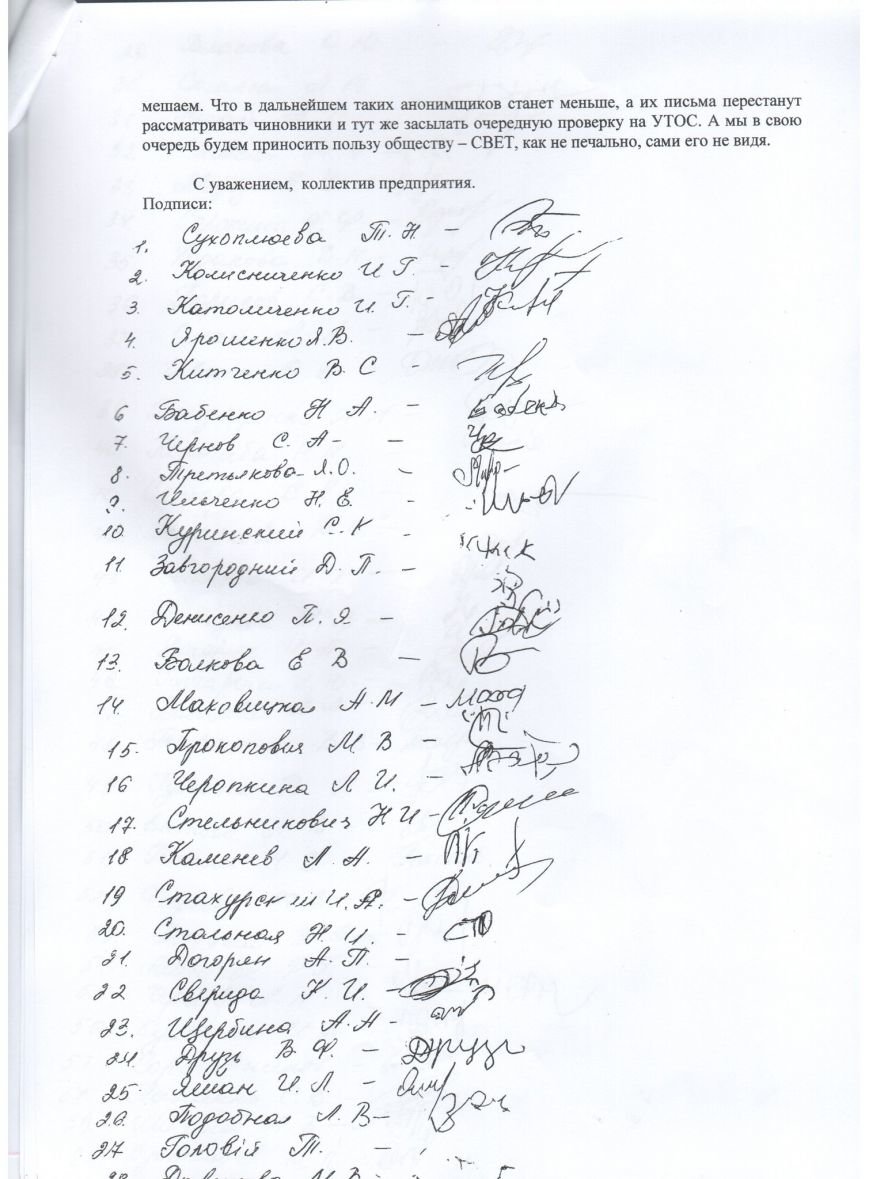 мешаем. Что в дальнейшем таких анонимщиков станет меньше, а их письма перестанут
рассматривать чиновники и тут же засылать очередную проверку на УТОС. А мы в свою
очередь будем приносить пользу обществу – СВЕТ, как не печально, сами его не видя.
С уважением, коллектив предприятия.
Подписи:
1. Сухоплюева Т. Н. –
2. Колисниченко И Г. -
3. Католиченко И. Г. -
4. Ярошенко Я.В. –
5. Китченко В. С -
6 Бабенко Н А. –
7. Чернов С. А- –
8. Третьякова Л.О. –
9. Ильченко Н. Е. -
10 Куринский С. К -
11. Завгородний Д. П. –
12. Денисенко П. Я. –
13. Волкова Е В –
14. Маховицкая А. М –
15. Прокопович М. В –
16 Черопкина Л И. –
17. Стельникович Н И -
18 Каменев Л. А. –
19 Стахурский И. Я. -
20. Стальная Н. И. -
21. Догорян А. П. –
22 Сверида К. И. –
23. Щербина А. А -
24. Друзь В. Ф. – Друзь
25. Яман И. Л. -
26. Подобная Л. В –
27 Головій Т. –